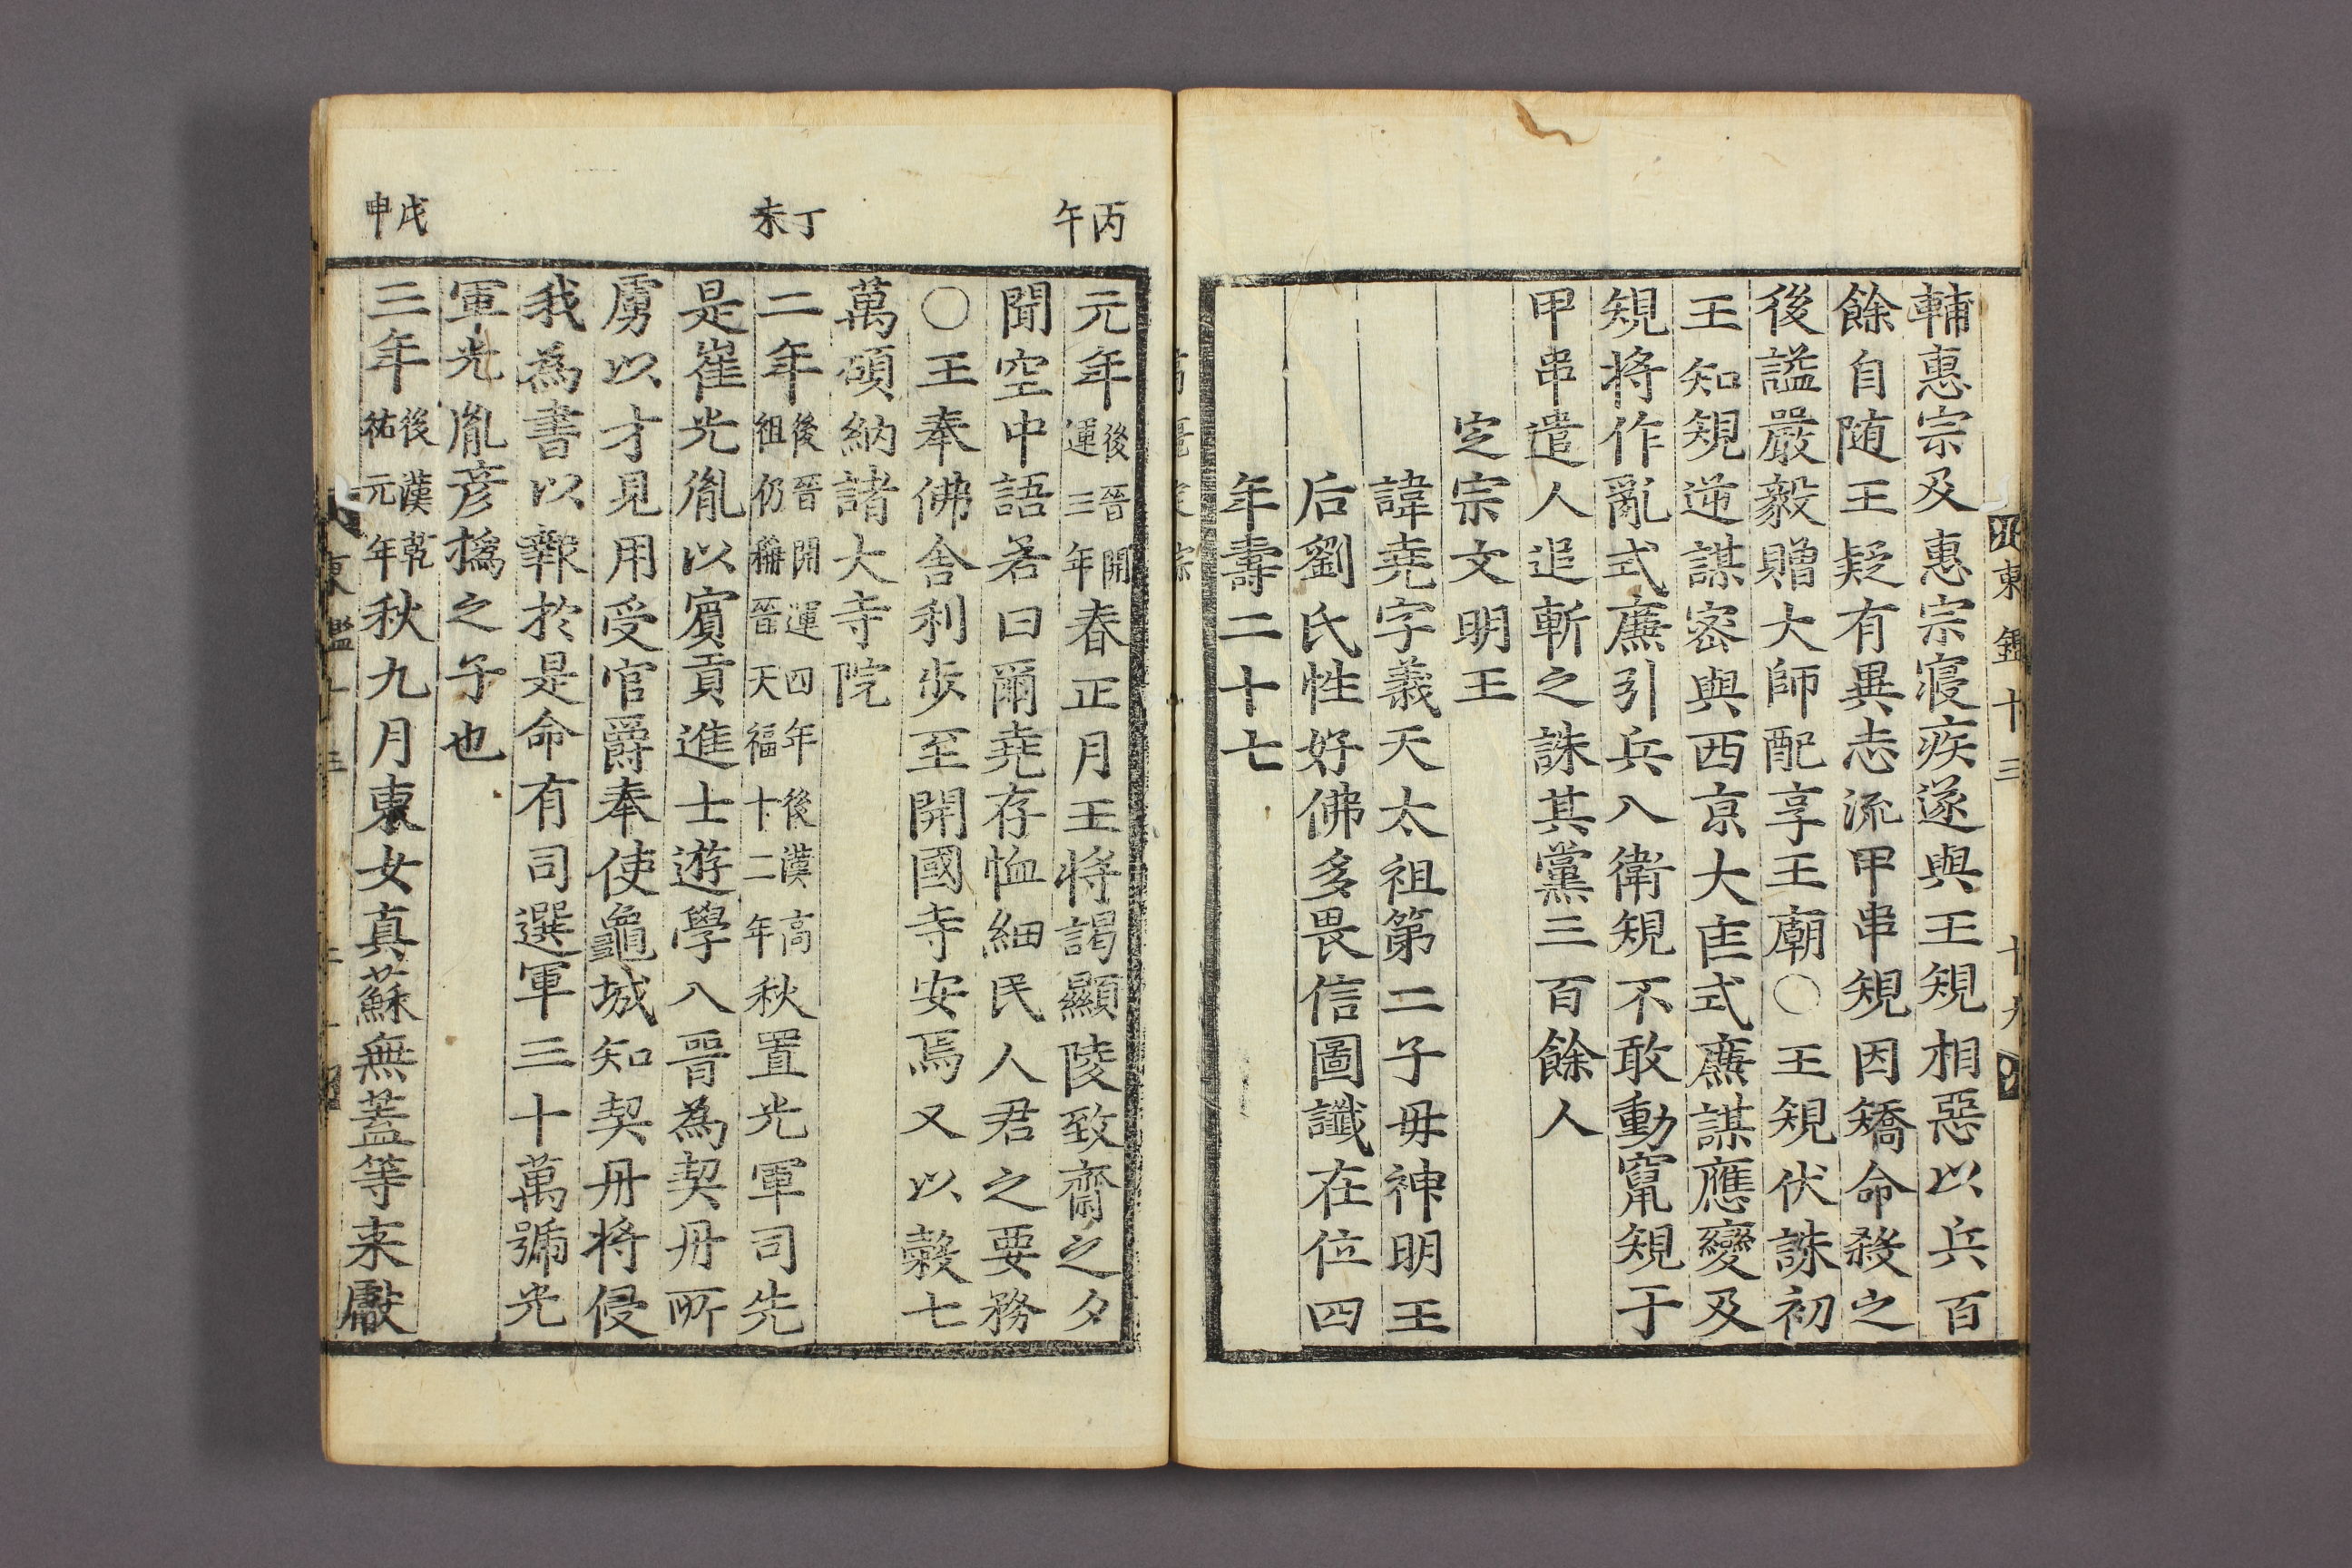 東鑑十三
十九
輔惠宗及惠宗寢疾遂與王規相惡以兵百
餘自随王疑有異志流甲串規因矯命殺之
後謚嚴毅贈大師配享王廟○王規伏誅初
王知規逆謀密與西京大匡式廉謀應變及
規将作亂式廉引兵入衛規不敢動竄規于
甲串遣人追斬之誅其黨三百餘人
定宗文明王
諱堯字義天太祖第二子毋神明王
后劉氏性好佛多畏信圖讖在位四
年壽二十七
丙午
元年後晉開運三年春正月王将謁顯陵致齋之夕
聞空中語若曰爾堯存恤細民人君之要務
○王奉佛舍利步至開國寺安焉又以穀七
萬碩納諸大寺院
丁未
二年後晉開運四年後漢高祖仍稱晉天福十二年秋置光軍司先
是崔光胤以賔貢進士遊學入晉為契丹所
虜以才見用受官爵奉使龜城知契丹将侵
我為書以報於是命有司選軍三十萬號光
軍光胤彦撝之子也
戊申
三年後漢乾祐元年秋九月東女真蘇無蓋等来獻
東鑑十三